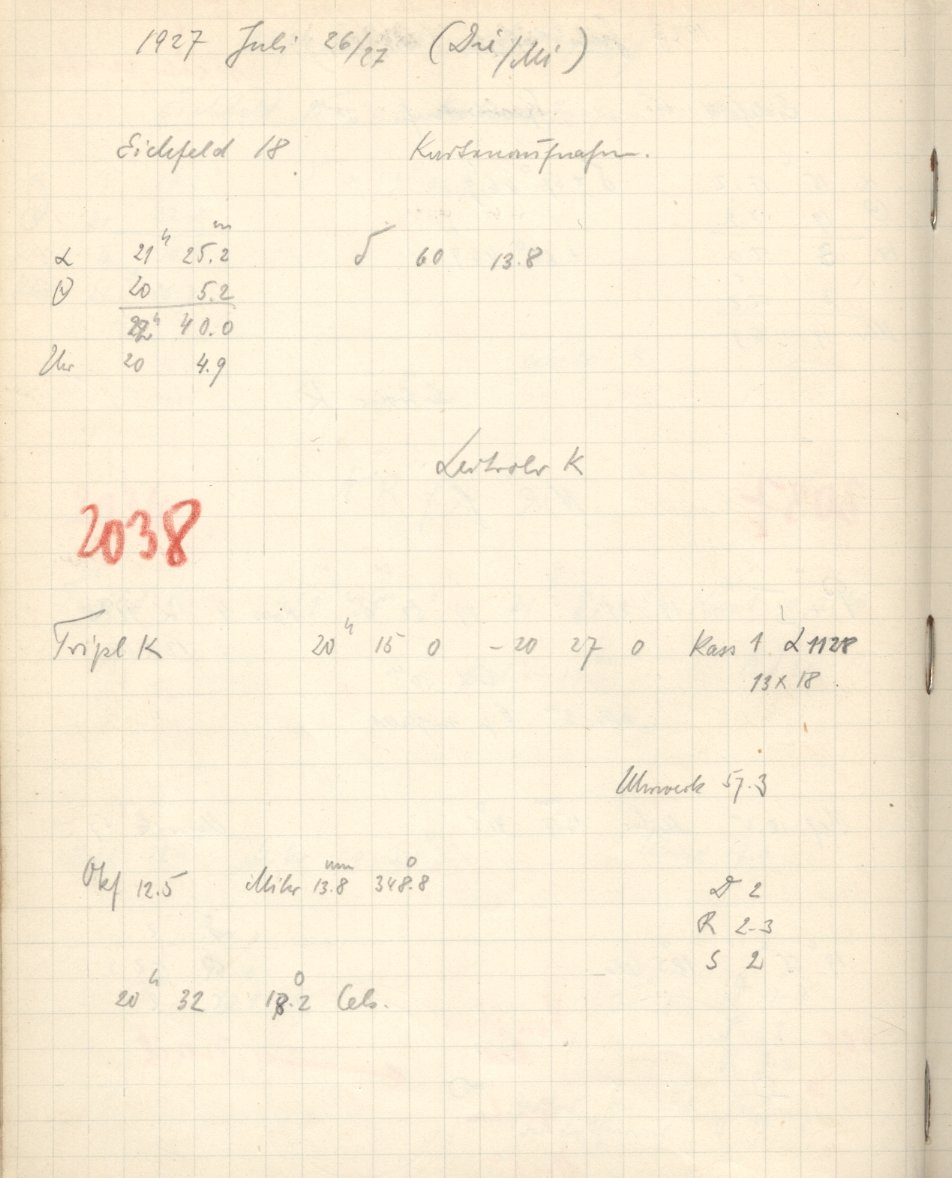 1927 Juli 26/27 (Di/Mi)
Eichfeld 18 Kartenaufnahm.
α 21h 25.2m δ 60 13.8
Θ 20 5.2
22h 40.0
Uhr 20 4.9
Leitrohr K
2038
Tripl K 20h 15 0 – 20 27 0 Kass 1 α 1128
13 x 18.
Uhrwerk 57.3
Okf 12.5 Mikr 13.8mm 348.8°
D 2
R 2-3
S 2
20h 32 18.2° Cels.